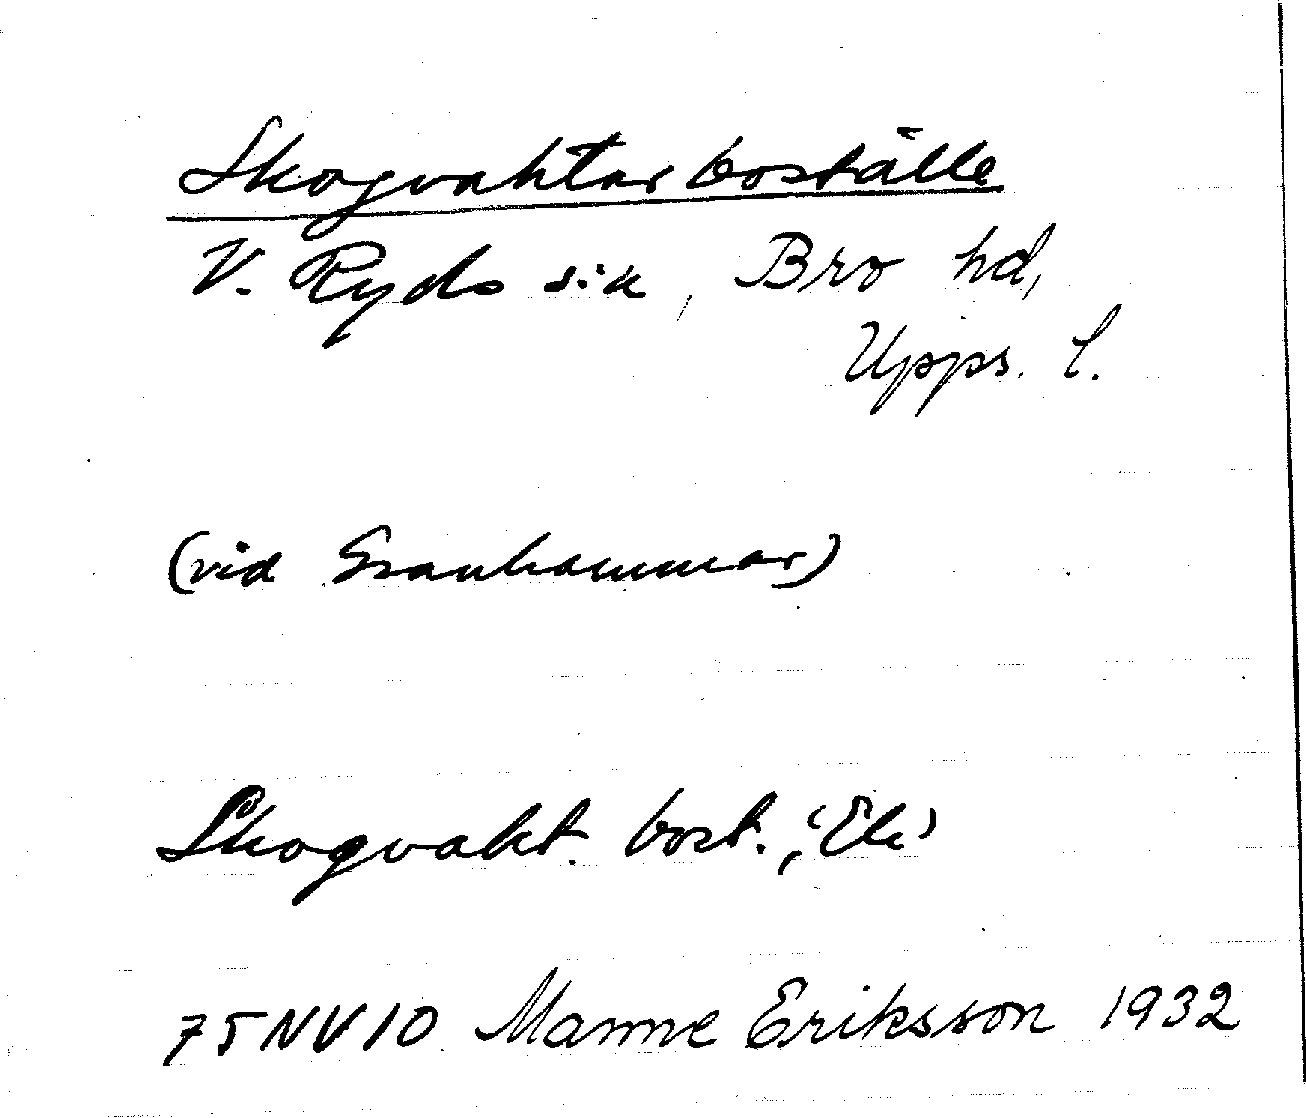 Skogvaktarboställe
V. Ryds sn, Bro hd,
Upps. l.
(vid Granhammar)
Skogvakt. bost., 'Ek'
75NV10 Manne Eriksson 1932